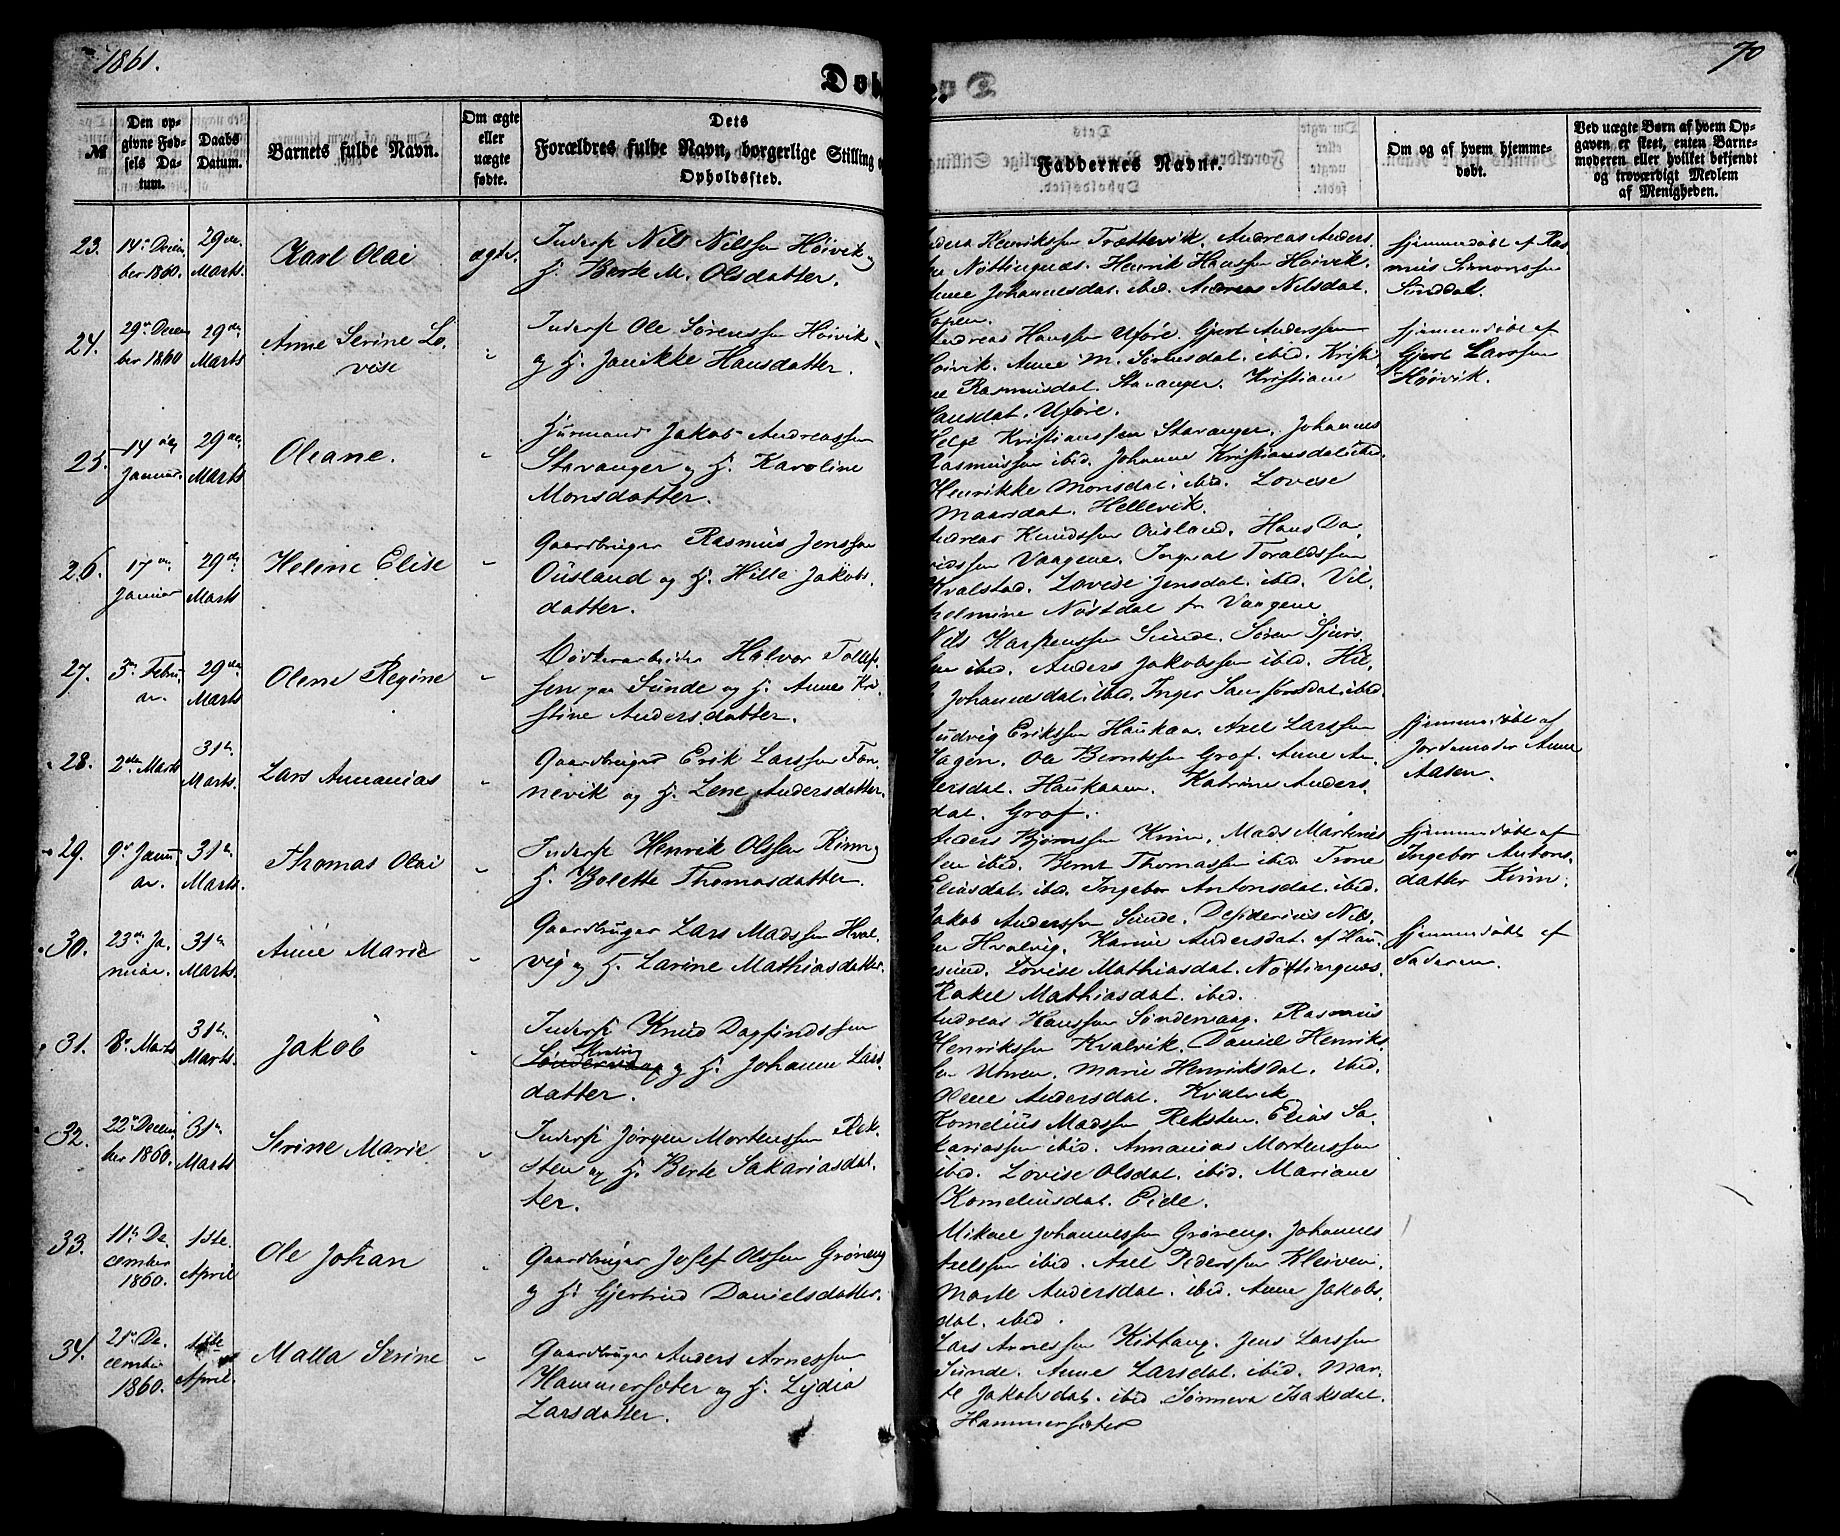 1861.
70
Døb
e.
№
Den op-
givne Fød-
sels Da-
tum.
Daabs
Datum.
Barnets fulde Navn.
Om ægte
eller
uægte
fødte.
Dets
Forældres fulde Navn, borgerlige Stilling o
Opholdssted.
Faddernes Navne.
Om og af hvem hjemme-
døbt.
Ved uægte Børn af hvem Op-
gaven er skeet, enten Barne-
moderen eller hvilket bekjendt
og troværdigt Medlem
af Menigheden.
23.
14de Decem-
ber 1860.
29de
Marts.
Karl Olai
ægte.
Inderst Nils Nilssen Høivik og
H. Berte M. Olsdatter.
Henrikssen Trættevik. Andreas Anders.
Nøttingnæs. Henrik Hanssen Høivik.
Johannesdat. ibid. Andreas Nilsdat.
hjemmedøbt af Ras-
mus Simonssen
Sørdal.
24.
29de Decem-
ber 1860
29de
Marts
Anne Serine Lo-
vise
"
Inderst Ole Sørenssen Høivik
og H. Janikke Hansdatter.
Andreas Hanssen Uføre. Gjert Anderssen
Høivik. Anne M. Sørensdat. ibid. Kristi-
ne Rasmusdat. Stavanger. Kristiane
Hansdat. Uføre.
hjemmedøbt af
Gjert Larssen
Høivik.
25.
14de
Januar.
29de
Marts
Oleane.
"
Huusmand Jakob Andreassen
Stavanger og H. Karoline
Monsdatter.
Helge Kristianssen Stavanger. Johannes
Rasmussen ibid. Johanne Kristiansdat. ibid.
Henrikke Monsdat. ibid. Lovise
Maarsdat. Hellevik.
26.
17de
Januar
29de
Marts
Helene Elise
"
Gaardbruger Rasmus Jenssen
Ousland og H. Hille Jakobs-
datter.
Andreas Knudssen Ousland. Hans Da-
vidssen Vaagene. Ingvat Toraldssen
Kvalstad. Lovise Jensdat. ibid. Vil-
helmine Nøstdal fr Vaagene
27.
3de Febru-
ar.
29de
Marts
Olene Regine
"
Bødkerarbeider Halvor Tollef-
sen paa Sunde og H. Anne Kri-
stine Andersdatter.
Nils Karstenssen Sunde. Søren Sjurs-
sen ibid. Anders Jakobssen ibid. Hil-
Johannesdat. ibid. Inger Samsonsdat. ibid.
28.
2den Marts
31te
Marts.
Lars Annanias
"
Gaardbruger Erik Larssen Fan-
nevik og H. Lene Andersdatter.
Ludvig Erikssen Haukaa. Axel Larssen
Hagen. Ole Berntssen Grof. Anne An-
dersdat. Haukaaen. Katrine Anders-
dat. Grof.
hjemmedøbt af
Jordemoder Anne
Aasen.
29.
9de Janu-
ar.
31te
Marts.
Thomas Olai
"
Inderst Henrik Olssen Kinn og
H. Bolette Thomasdatter.
Anders Bjørnssen Kinn. Mads Markus-
sen ibid. Bernt Thomassen ibid. Trone
Eliasdat. ibid. Ingebor Antonsdat. ibid.
hjemmedøbt af
Ingebor Antons-
datter Kinn.
30.
23de Ja-
nuar.
31te
Marts.
Anne Marie
"
Gaardbruger Lars Madssen Hval-
vig og H. Larine Mathiasdatter.
Jakob Anderssen Sunde. Desiderius Nils-
sen Hvalvig. Karine Andersdat. af Hau-
gsund. Lovise Mathiasdat. Nøttingnæs.
Rakel Mathiasdat. ibid.
hjemmedøbt af
Faderen.
31.
8de Marts
31te
Marts.
Jakob
"
Inderst Knud Dagfindssen
Kvalvig
Søndervaag og H. Johanne Lars-
datter.
Andreas Hanssen Søndervaag. Rasmus
Henrikssen Kvalvik. Daniel Henriks-
sen Unnen. Marie Henriksdat. ibid.
Olene Andersdat. Kvalvik
32.
22de Decem-
ber 1860.
31te
Marts
Serine Marie
"
Inderst Jørgen Mortenssen Rek-
sten og H. Berte Sakariasdat-
ter.
Kornelius Madssen Reksten. Elias Sa-
kariassen ibid. Annanias Mortenssen
ibid. Lovise Olsdat. ibid. Mariane
Korneliusdat. Eide.
33.
11te De-
cember
1860.
1ste
April
Ole Johan
"
Gaardbruger Josef Olssen Grøneng
og H. Gjertrud Danielsdatter.
Mikael Johannessen Grøneng. Johannes
Axelssen ibid. Axel Pederssen Kleiven.
Marte Andersdat. ibid. Anne Jakobs-
dat. ibid.
34.
21de De-
cember
1860.
1ste
April.
Malla Serine
"
Gaardbruger Anders Arnessen
Hammersæter og H. Lydia
Larsdatter.
Lars Arnessen Kittang. Jens Larssen
Sunde. Anne Larsdat. ibid. Mar-
te Jakobsdat. ibid Sønneva Isaksdat.
Hammersæter